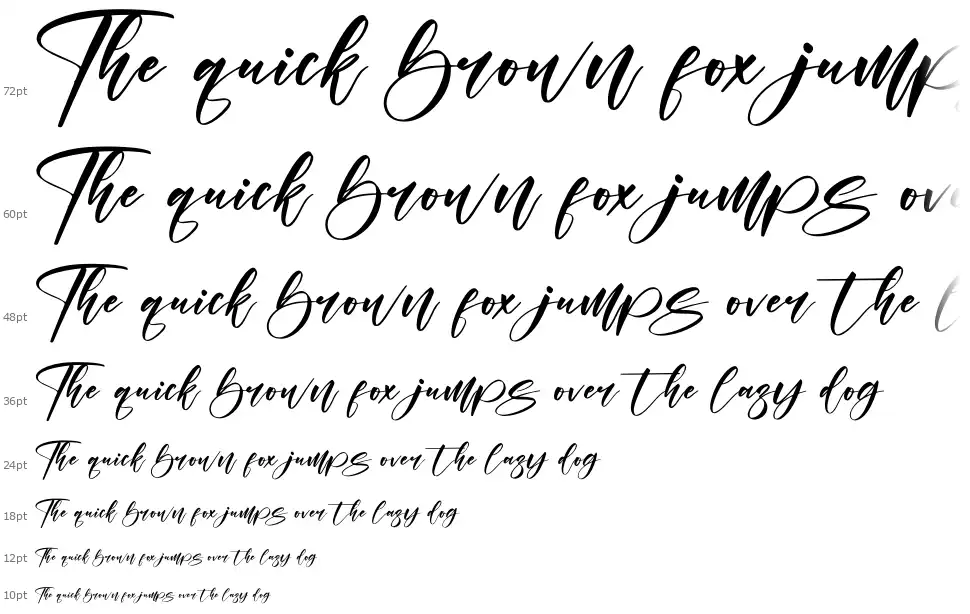 72pt The quick brown fox jump
60pt The quick brown fox jumps ov
48pt The quick brown fox jumps over the l
36pt The quick brown fox jumps over the lazy dog
24pt The quick brown fox jumps over the lazy dog
18pt The quick brown fox jumps over the lazy dog
12pt The quick brown fox jumps over the lazy dog
10pt The quick brown fox jumps over the lazy dog